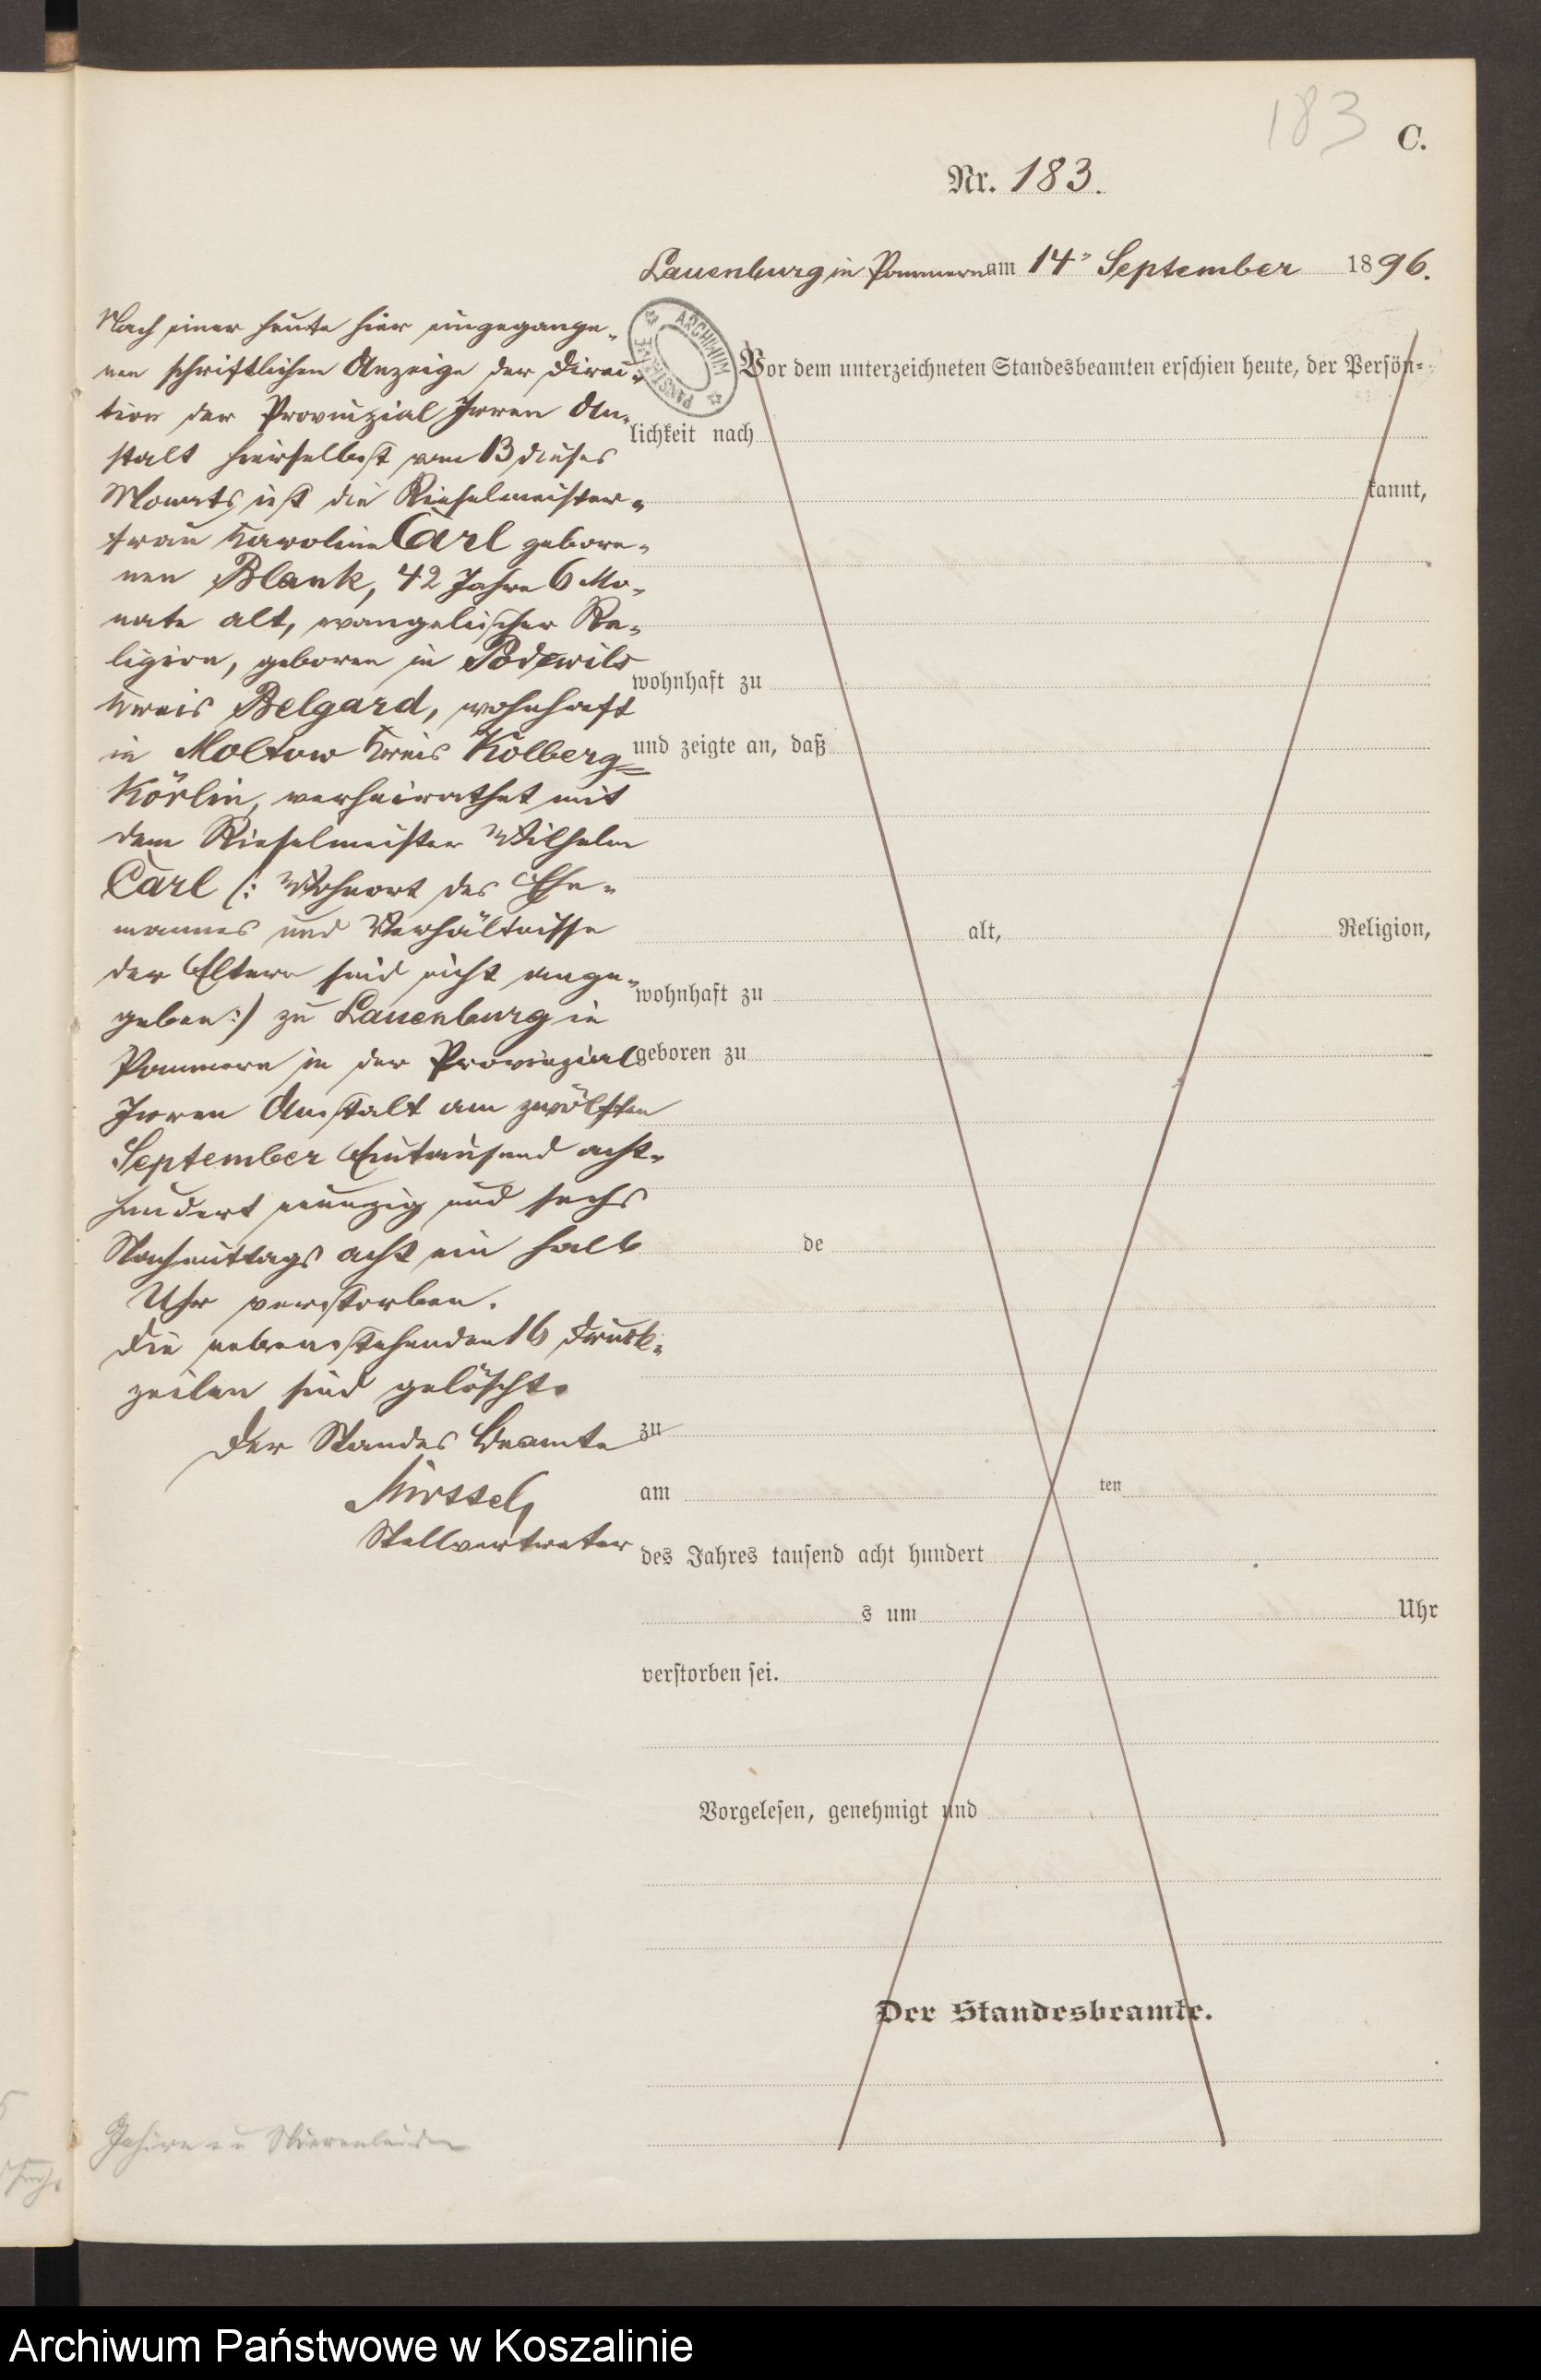 183
C.
Nr. 183.
Lauenburg in Pommern am 14ⁿ September 1896.
Nach einer heute hier eingegange-
nen schriftlichen Anzeige der Direc-
tion der Provinzial Irren An-
stalt hierselbst vom 13 dieses
Monats ist die Rieselmeister-
frau Karoline Carl gebore-
nen Blank, 42 Jahre 6 Mo-
nate alt, evangelischer Re-
ligion, geboren in Podewils
Kreis Belgard, wohnhaft
in Moltow Kreis Kolberg-
Körlin, verheirathet mit
dem Rieselmeister Wilhelm
Carl (: Wohnort des Ehe-
mannes und Verhältnisse
der Eltern sind nicht ange-
geben :) zu Lauenburg in
Pommern in der Provinzial
Irren Anstalt am zwölften
September Eintausend acht-
hundert neunzig und sechs
Nachmittags acht ein halb
Uhr verstorben.
Die nebenstehenden 16 Druck-
zeilen sind gelöscht.
Der Standes Beamte
Stellvertreter
ARCHIWUM PAŃSTWOWE
Vor dem unterzeichneten Standesbeamten erschien heute, der Persön-
lichkeit nach
kannt,
wohnhaft zu
und zeigte an, daß
alt, Religion,
wohnhaft zu
geboren zu
de
zu
am ten
des Jahres tausend acht hundert
s um Uhr
verstorben sei.
Vorgelesen, genehmigt und
Der Standesbeamte.
Archiwum Państwowe w Koszalinie